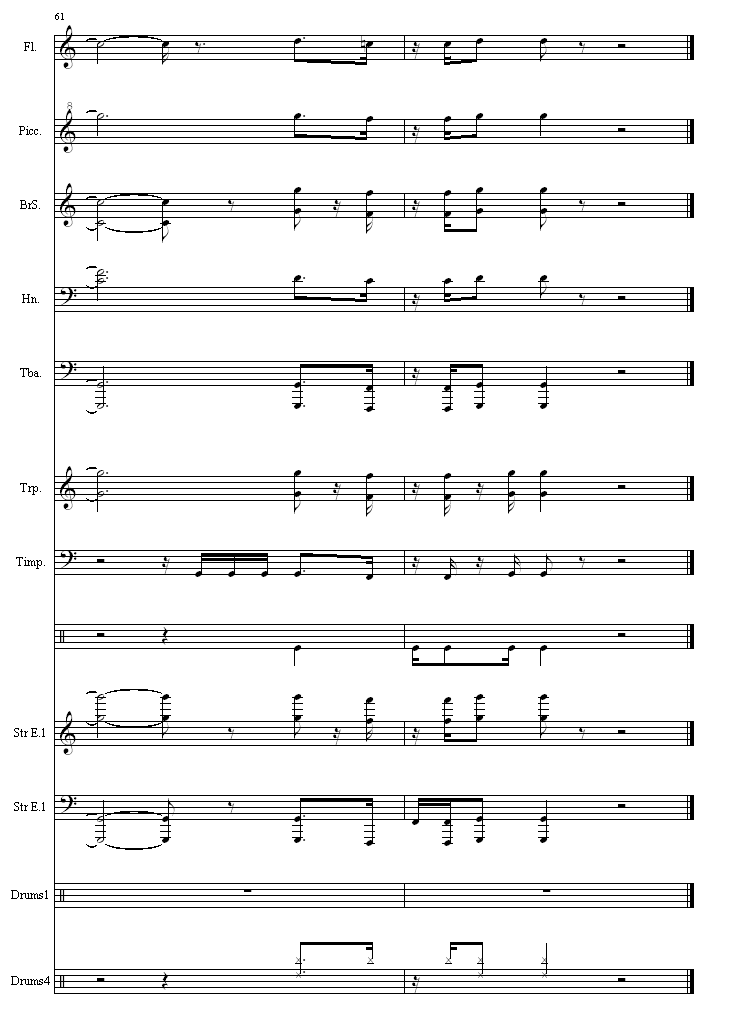 61
Fl.
8
Picc.
BrS.
Hn.
Tba.
Trp.
Timp.
Str E.1
Str E.1
Drums1
Drums4